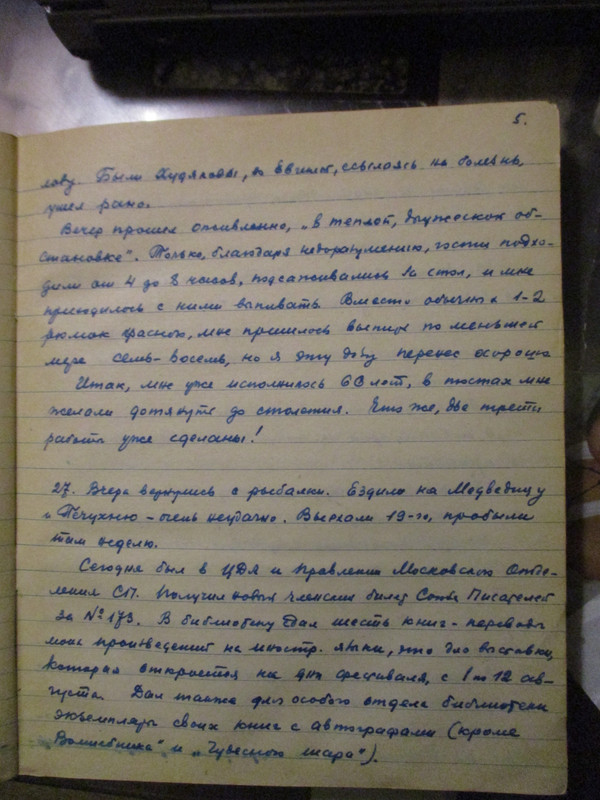 5.
лову. Были Худяковы, но Евгений, ссылаясь на болезнь,
ушел рано.
Вечер прошел оживленно, „в теплой, дружеской об-
становке". Только, благодаря недоразумению, гости подхо-
дили от 4 до 8 часов, подсаживались за стол, и мне
приходилось с ними выпивать. Вместо обычных 1-2
рюмок красного, мне пришлось выпить по меньшей
мере семь-восемь, но я эту дозу перенес хорошо
Итак, мне уже исполнилось 66 лет, в тостах мне
желали дотянуть до столетия. Что же, две трети
работы уже сделаны!
27. Вчера вернулись с рыбалки. Ездили на Медведицу
и – очень неудачно. Выехали 19-го, пробыли
там неделю.
Сегодня был в ЦДЛ и Правлении Московского Отде-
ления СП. Получил новый членский билет Союза Писателей
за № 173. В библиотеку дал шесть книг - переводы
моих произведений на иностр. языки, это для выставки,
которая откроется на дни фестиваля, с 1 по 12 ав-
густа. Дал также для особого отдела библиотеки
экземпляры своих книг с автографами (кроме
„Волшебника" и „Чудесного шара").